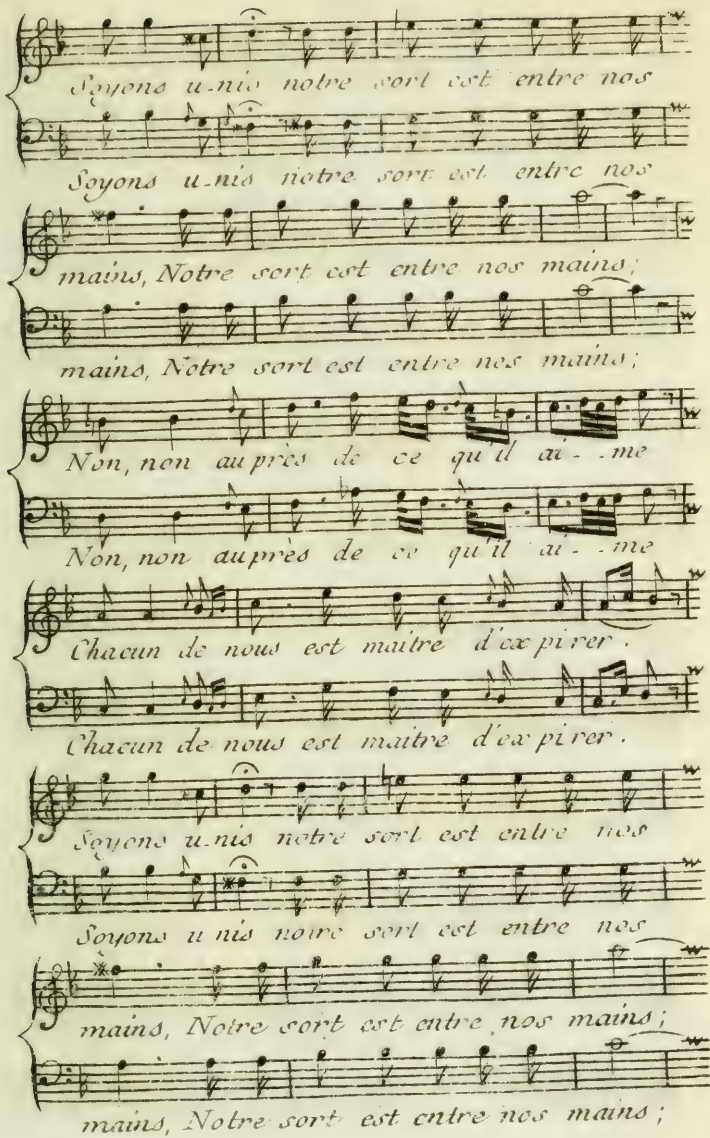 Soyons u-nis notre sort est entre nos
Soyons u-nis notre sort est entre nos
mains, Notre sort est entre nos mains;
mains, Notre sort est entre nos mains;
Non, non auprès de ce qu'il ai--me
Non, non auprès de ce qu'il ai--me
Chacun de nous est maitre d'ex pirer.
Chacun de nous est maitre d'ex pirer.
Soyons u-nis notre sort est entre nos
Soyons u nis notre sort est entre nos
mains, Notre sort est entre nos mains;
mains, Notre sort est entre nos mains;